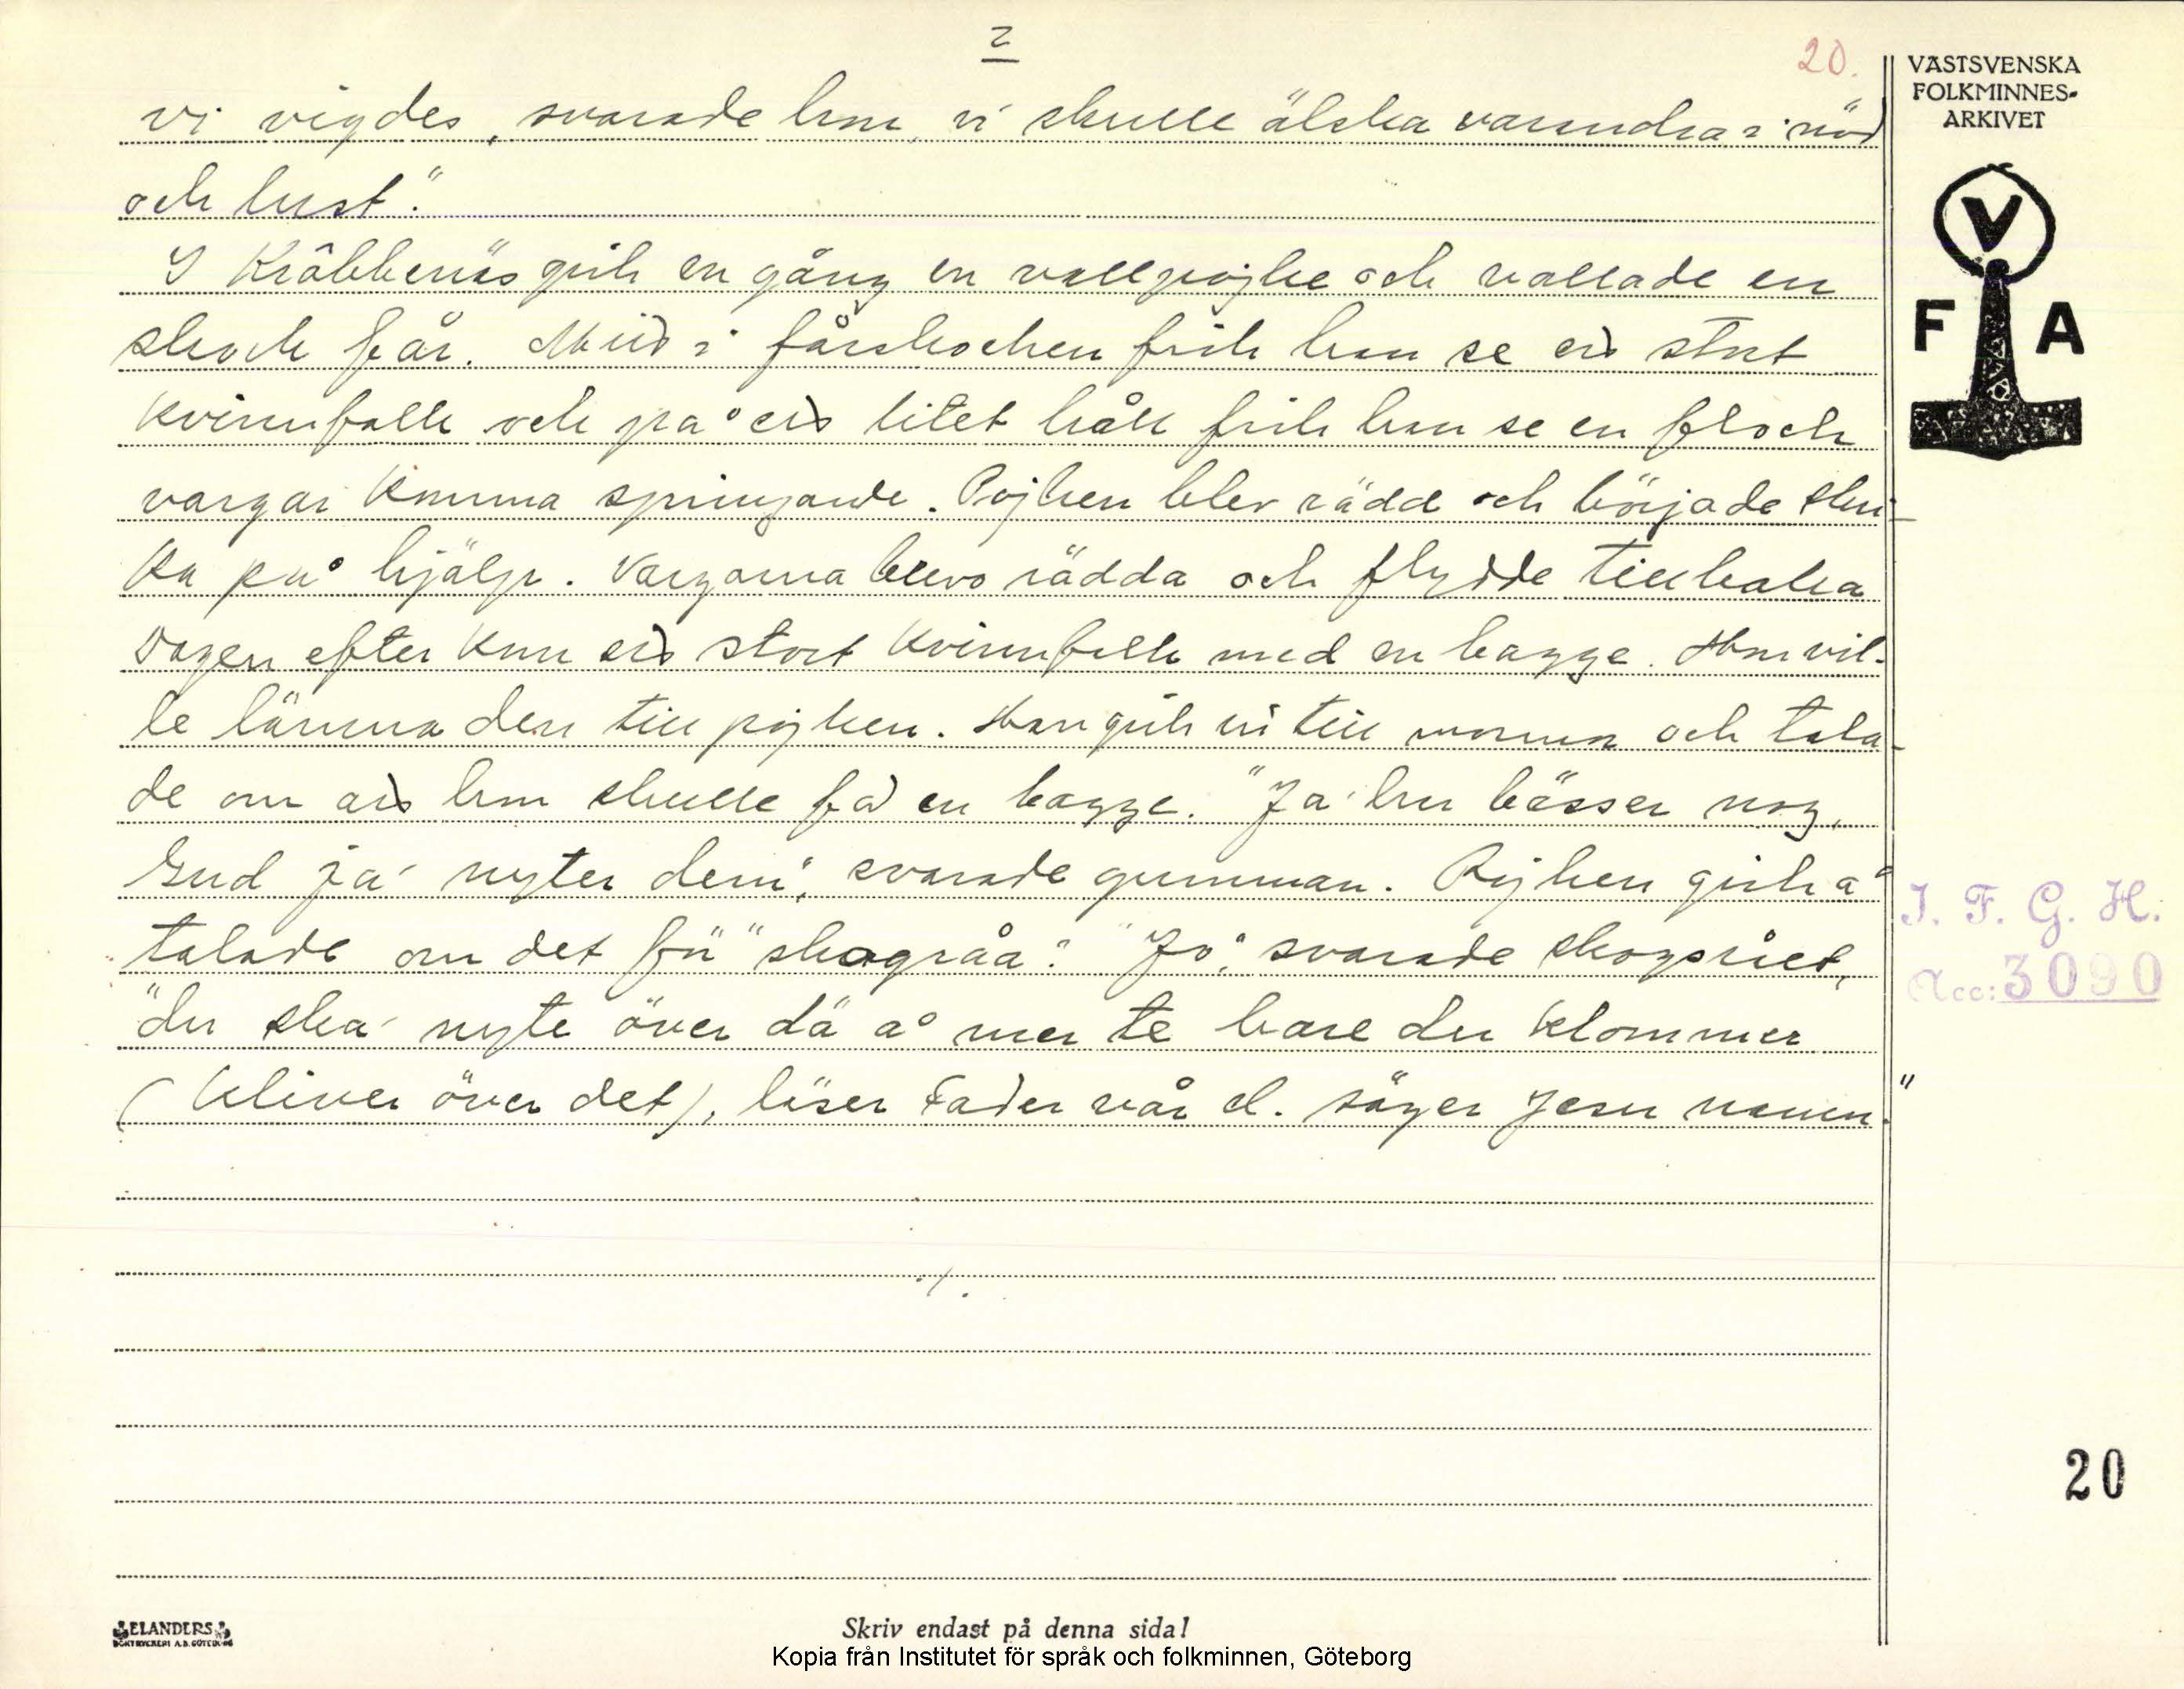 2
20.
VÄSTSVENSKA
FOLKMINNES-
ARKIVET
vi vigdes, svarade hon, vi skulle älska varandra i nöd
och lust."
V
F A
I Kråbbenäs gick en gång en vallpojke och vallade en
skock får. Mitt i fårskocken fick han se ett stort
kvinnfolk och på ett litet håll fick han se en flock
vargar komma springande. Pojken blev rädd och började skri-
ka på hjälp. Vargarna blevo rädda och flydde tillbaka
Dagen efter kom ett stort kvinnfolk med en bagge. Hon vil-
le lämna den till pojken. Han gick in till mormor och tala-
de om att hon skulle få en bagge. "Ja' har bässer nog,
Gud ja' nyter dem", svarade gumman. Pojken gick å
talade om det för "skogråa". "Jo", svarade skogsrået,
"du ska' nyte över dä å mer te bare du klommer
(kliver över det), läser Fader vår el. säger Jesu namn."
./.
I. F. G. H.
Acc: 3090
20
ELANDERS
BOKTRYCKERI A.B. GÖTEBORG
Skriv endast på denna sida!
Kopia från Institutet för språk och folkminnen, Göteborg